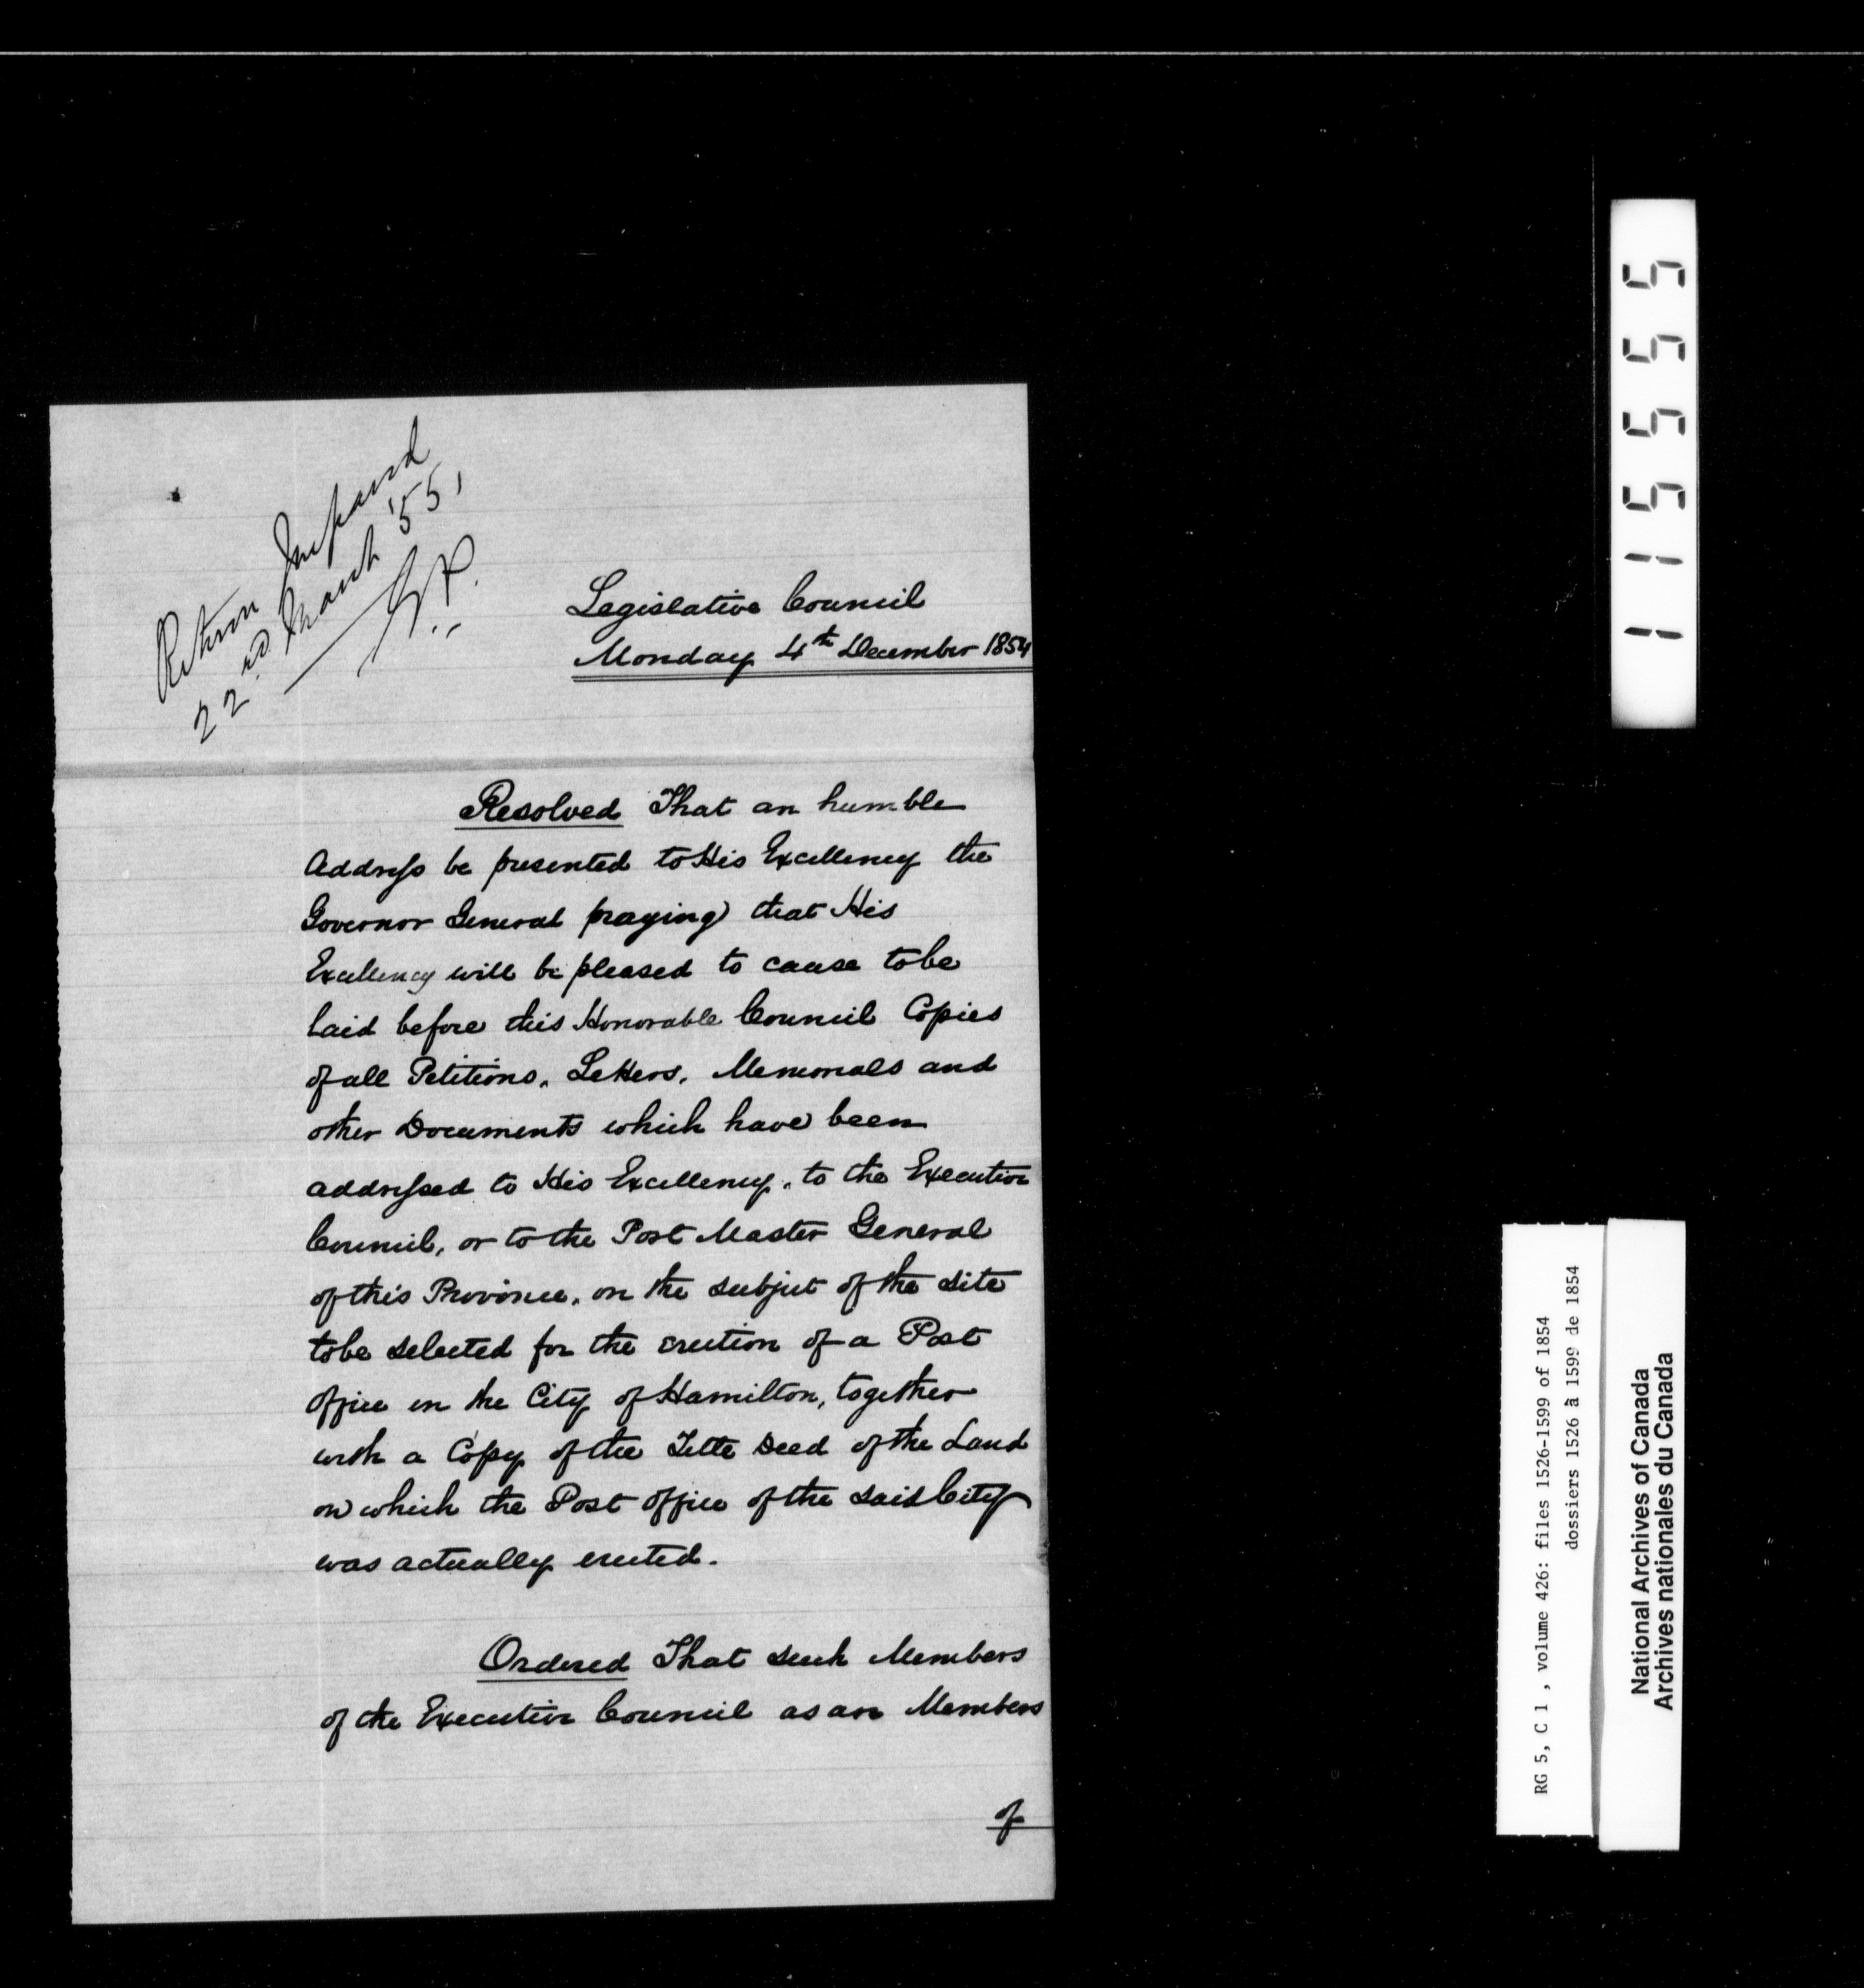 Return Prepared
22nd March '55,
Legislative Council
Monday 4th December 1854
Resolved That an humble
Address be presented to His Excellency the
Governor General praying that His
Excellency will be pleased to cause to be
laid before this Honorable Council Copies
of all Petitions, Letters, Memorials and
other Documents which have been
addressed to His Excellency, to the Executive
Council, or to the Post Master General
of this Province, on the subject of the site
to be selected for the erection of a Post
Office in the City of Hamilton, together
with a Copy of the Title Deed of the Land
on which the Post Office of the said City
was actually erected.
Ordered That such Members
of the Executive Council as are Members
of
115555
RG 5, C 1 , volume 426: files 1526-1599 of 1854
dossiers 1526 à 1599 de 1854
National Archives of Canada
Archives nationales du Canada